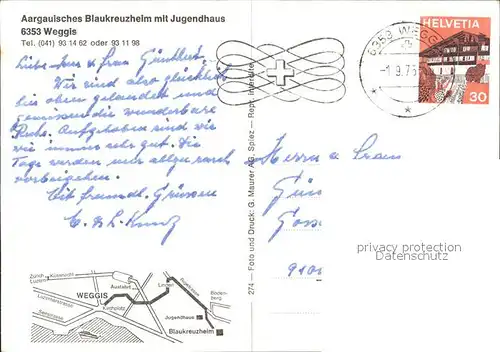 Aargauisches Blaukreuzheim mit Jugendhaus
6353 Weggis
Tel. (041) 93 14 62 oder 93 11 98
Liebe Herr u. Frau
Wir sind also glücklich
hier oben gelandet und
geniessen die wunderbare
Ruhe. Aufgehoben sind wir
wie immer sehr gut. Die
Tage werden nur allzu rasch
vorbeigehen.
Mit freundl. Grüssen
E. & L. Kunz
274 — Foto und Druck: G. Maurer AG, Spiez — Repr. interdite
6353 WEGGIS
-1.9.75
HELVETIA
30
Herrn u. Frau
Gün
Goss
9100
privacy protection
Datenschutz
Zürich
Luzern
Küssnacht
Luzernerstrasse
Seestrasse
WEGGIS
Kirchplatz
Autobahn
Linden
Rigistrasse
Boden-
berg
Jugendhaus
Blaukreuzheim